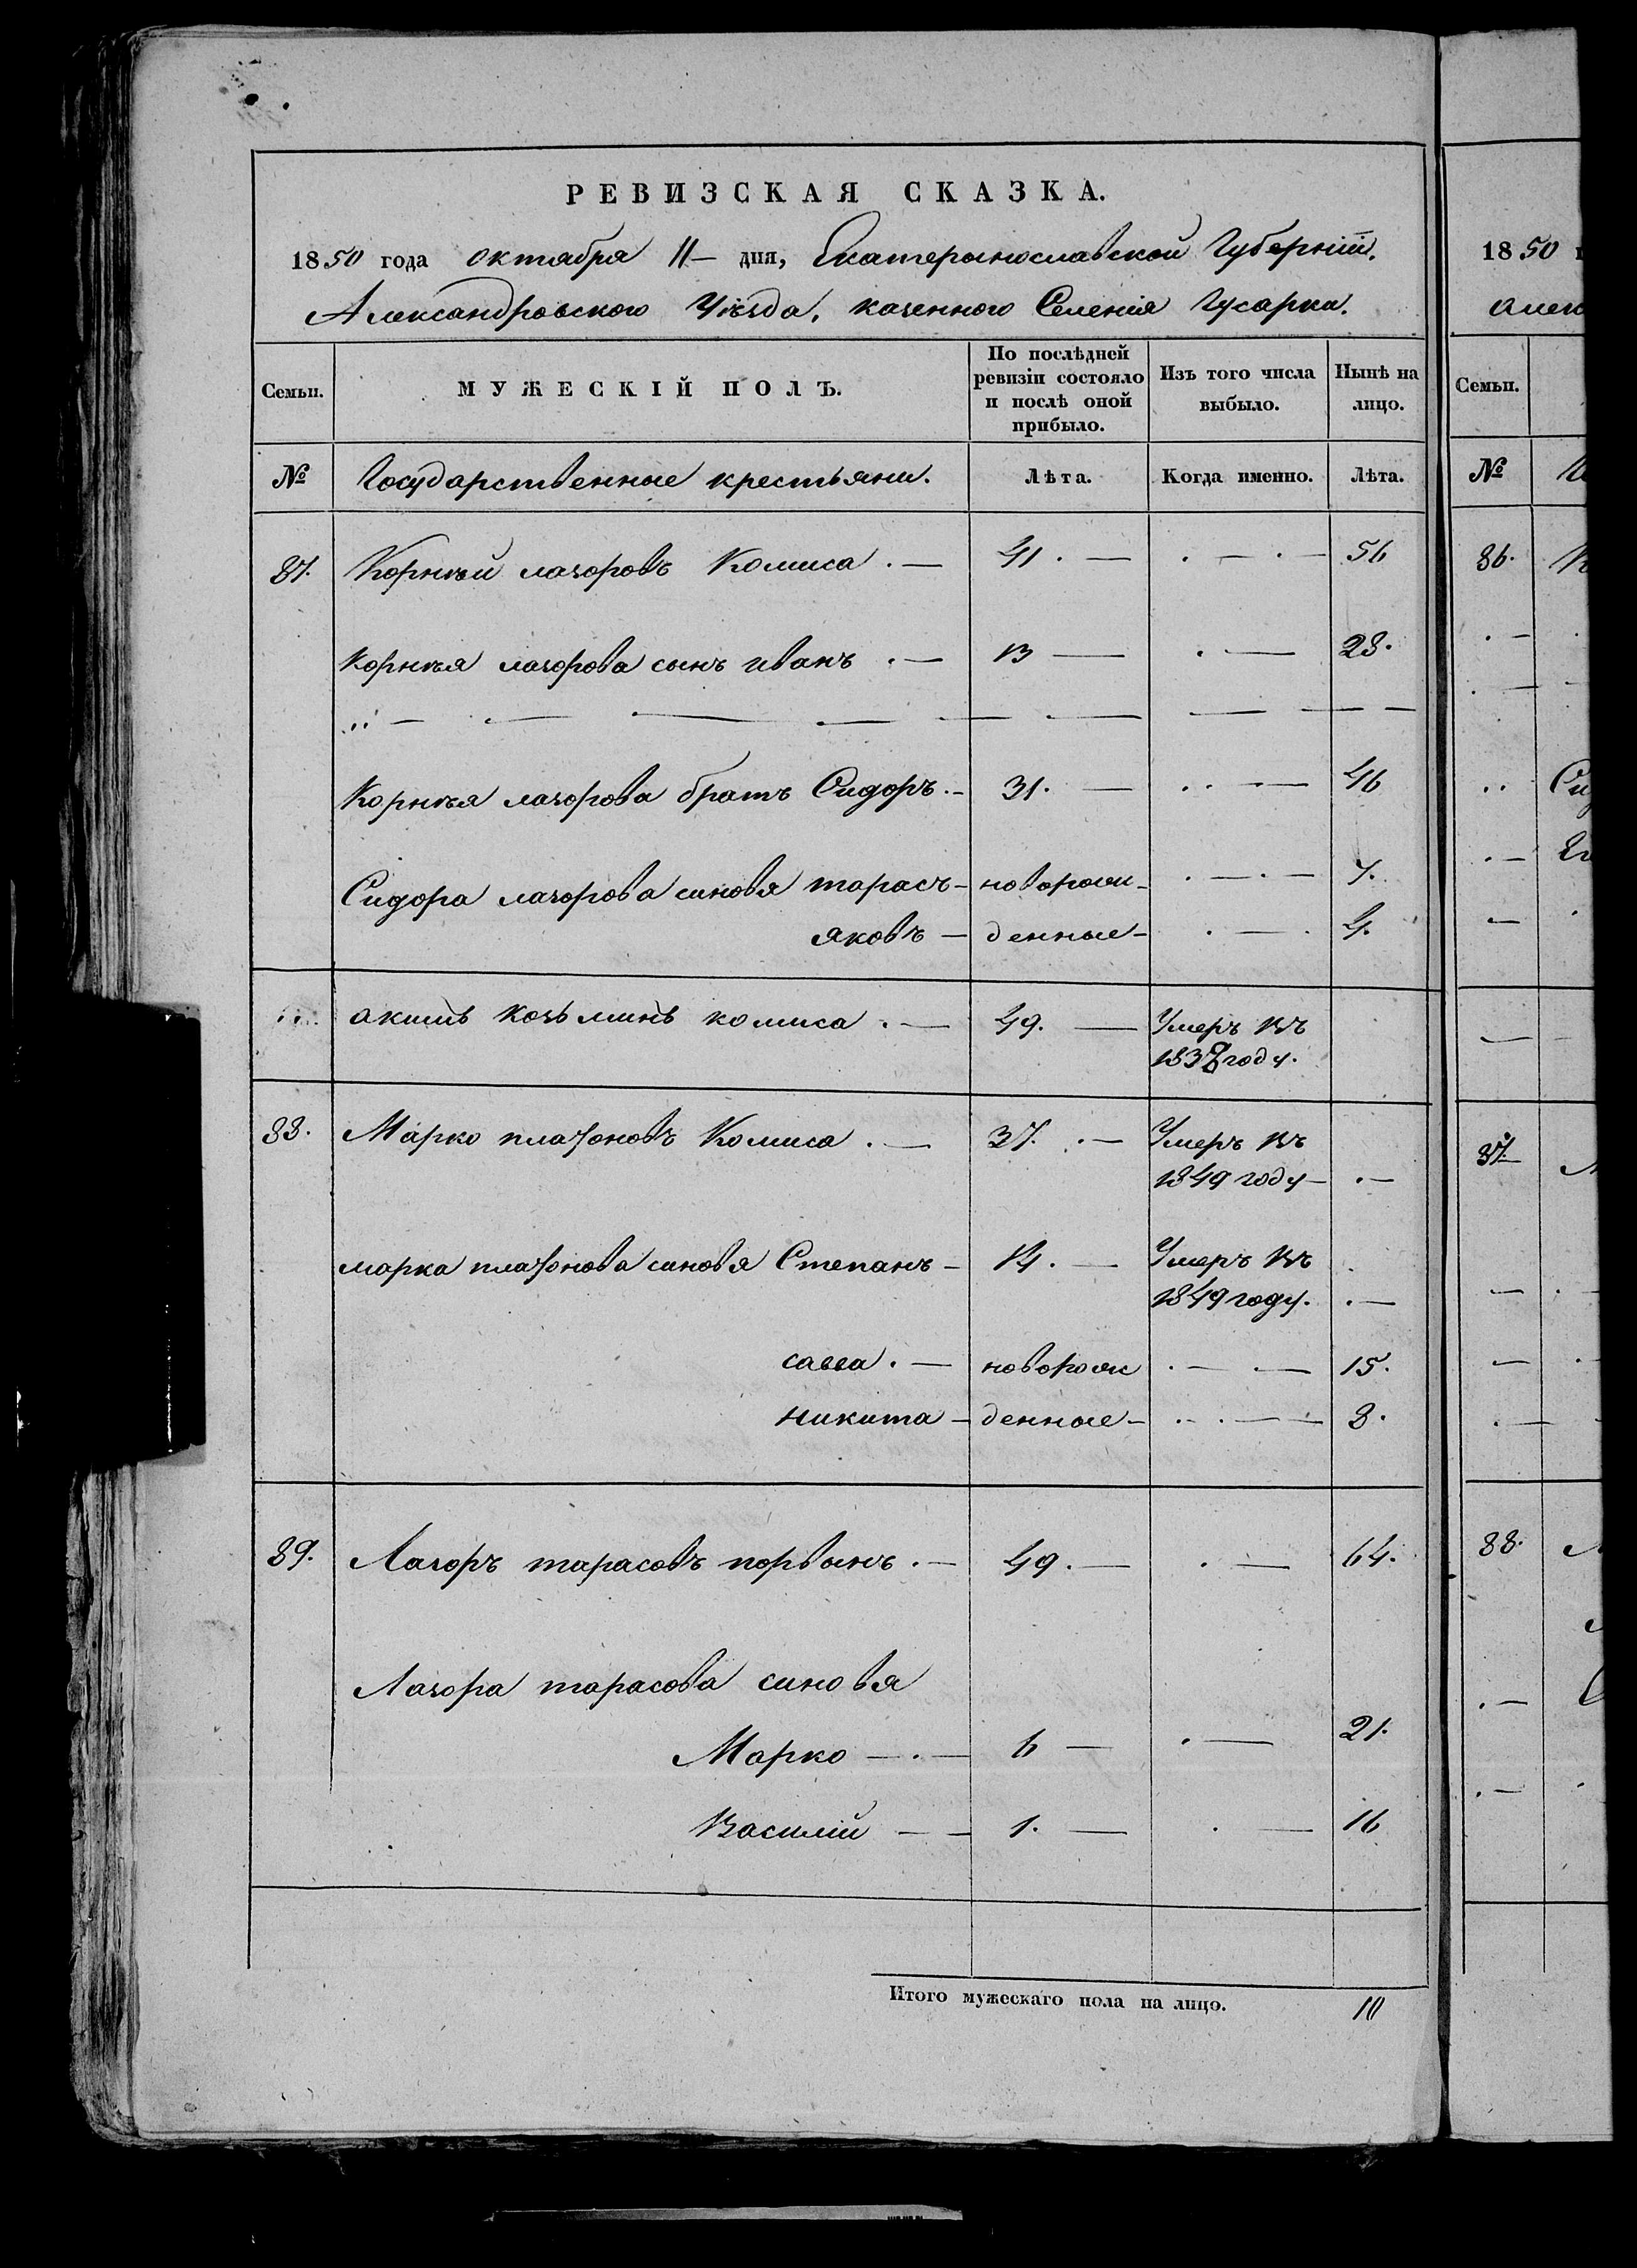 РЕВИЗСКАЯ СКАЗКА.
1850 года октабря 11– дня, Екатерынославской Губерніи,
Александровского Уѣзда, казенного Селенія Гусарка.
Семьи. МУЖЕСКІЙ ПОЛЪ. По послѣдней ревизіи состояло и послѣ оной прибыло. Изъ того числа выбыло. Нынѣ на лицо.
№ Государственные крестьяни. Лѣта. Когда именно. Лѣта.
87. Корнѣй лазоровъ Комиса . — 41 . — . — . — 56
Корнѣя лазорова сынъ иванъ . — 13 — . — 28.
Корнѣя лазорова братъ Сидоръ. – 31. — . . — 46
Сидора лазорова синовя тарасъ – новорож- . — . — 7.
яковъ — денные – . — . 4.
акимъ козьминъ комиса . — 49. — Умеръ въ
1838 году.
88. Марко платоновъ Комиса . — 37. . — Умеръ въ
1849 году – . —
марка платонова синовя Степанъ – 14 . — Умеръ въ
1849 году. . —
савва . — новорож . — — 15.
никита – денные – . . — 8.
89. Лазоръ тарасовъ порвынъ . — 49 . — . — 64.
Лазора тарасова синовя
Марко — . — 6 — . — 21.
Василій — — 1. — . — 16
Итого мужескаго пола на лицо. 10
1850
алек
Семьи.
№
86.
Сид
37.
88.